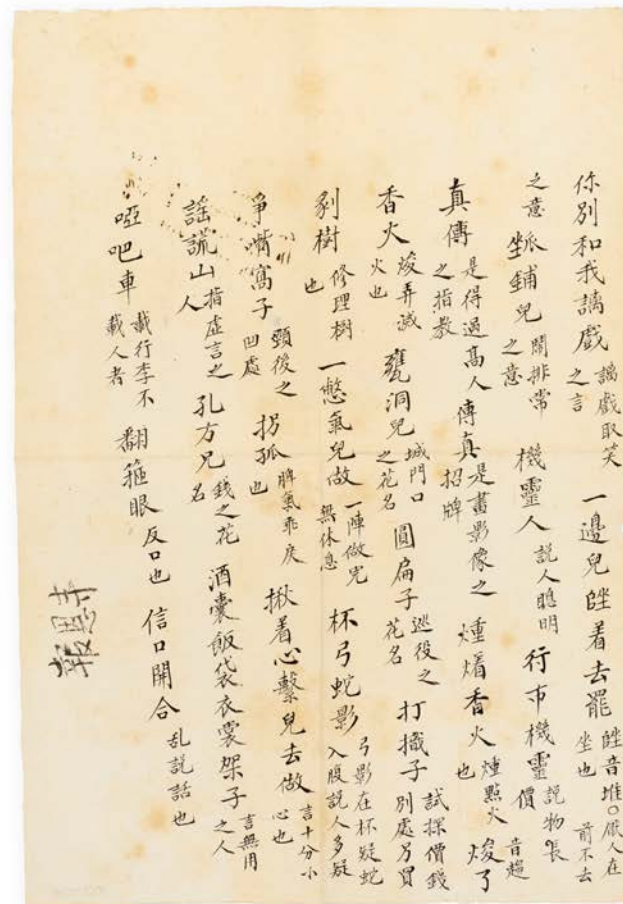 你別和我謆戲 謆戲取笑之言 一邊兒𨂝着去罷 音堆○厭人在前不去坐也
之意 坐𠂢鋪兒 鬧排常之意 機靈人 説人聰明 行市機靈 説物長價
真傳 是得過髙人之指教 傳真 是畫影像之招牌 煙㸂香火 煙點火也 焌了 音趨
香火 焌弄滅火也 甕洞兒 城門口之花名 圓扁子 巡役之花名 打撠子 試探價錢別處另買
剢樹 修理樹也 一憋氣兒做 一陣做完無休息 杯弓蛇影 弓影在杯疑蛇入腹説人多疑
爭嘴窩子 頸後之凹處 拐孤 脾氣乖戾也 揪着心繫兒去做 言十分小心也
謡謊山 指虛言之人 孔方兄 錢之花名 酒囊飯袋衣裳架子 言無用之人
啞吧車 載行李不載人者 翻箍眼 反口也 信口開合 乱説話也